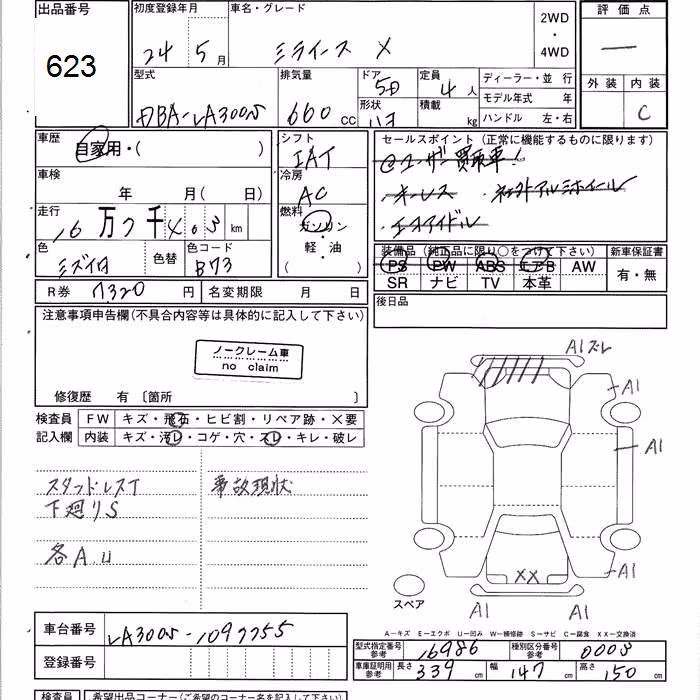 出品番号 初度登録年月 車名・グレード 2WD・4WD 評価点
623 24年 5月 ミライース X
外装 内装 C
型式 排気量 ドア 定員 ディーラー・並行
DBA-LA300S 660cc 5D 4人 モデル年式 年
形状 ハコ 積載 kg ハンドル 左・右
車歴 自家用・( ) シフト IAT セールスポイント (正常に機能するものに限ります)
@ユーザー買取車!
車検 年 月( 日) 冷房 AC キーレス ・社外アルミホイール
走行 16万7千403km 燃料 ガソリン・軽・油 ( ) エコアイドル
色 ミズイロ 色替 色コード B73
装備品 (純正品に限り○をつけて下さい) 新車保証書
PS PW ABS エアB AW 有・無
SR ナビ TV 本革
R券 7320円 名変期限 月 日 後日品
注意事項申告欄(不具合内容等は具体的に記入して下さい)
ノークレーム車
no claim
修復歴 有 〔箇所 〕
検査員 FW キズ・飛石・ヒビ割・リペア跡・×要
記入欄 内装 キズ・汚レ・コゲ・穴・スレ・キレ・破レ
A1ズレ
A1
A1
A1
XX
A1 A1
スタッドレスT 事故現状
下廻りS
各A.U
スペア
A-キズ E-エクボ U-凹み W-補修跡 S-サビ C-腐食 XX-交換済
車台番号 LA300S-1097755
登録番号
型式指定番号 参考 16986 種別区分番号 参考 0003
車庫証明用 参考 長さ 339cm 幅 147cm 高さ 150cm
検査員 希望出品コーナー(ご希望のコーナー名を記入して下さい)